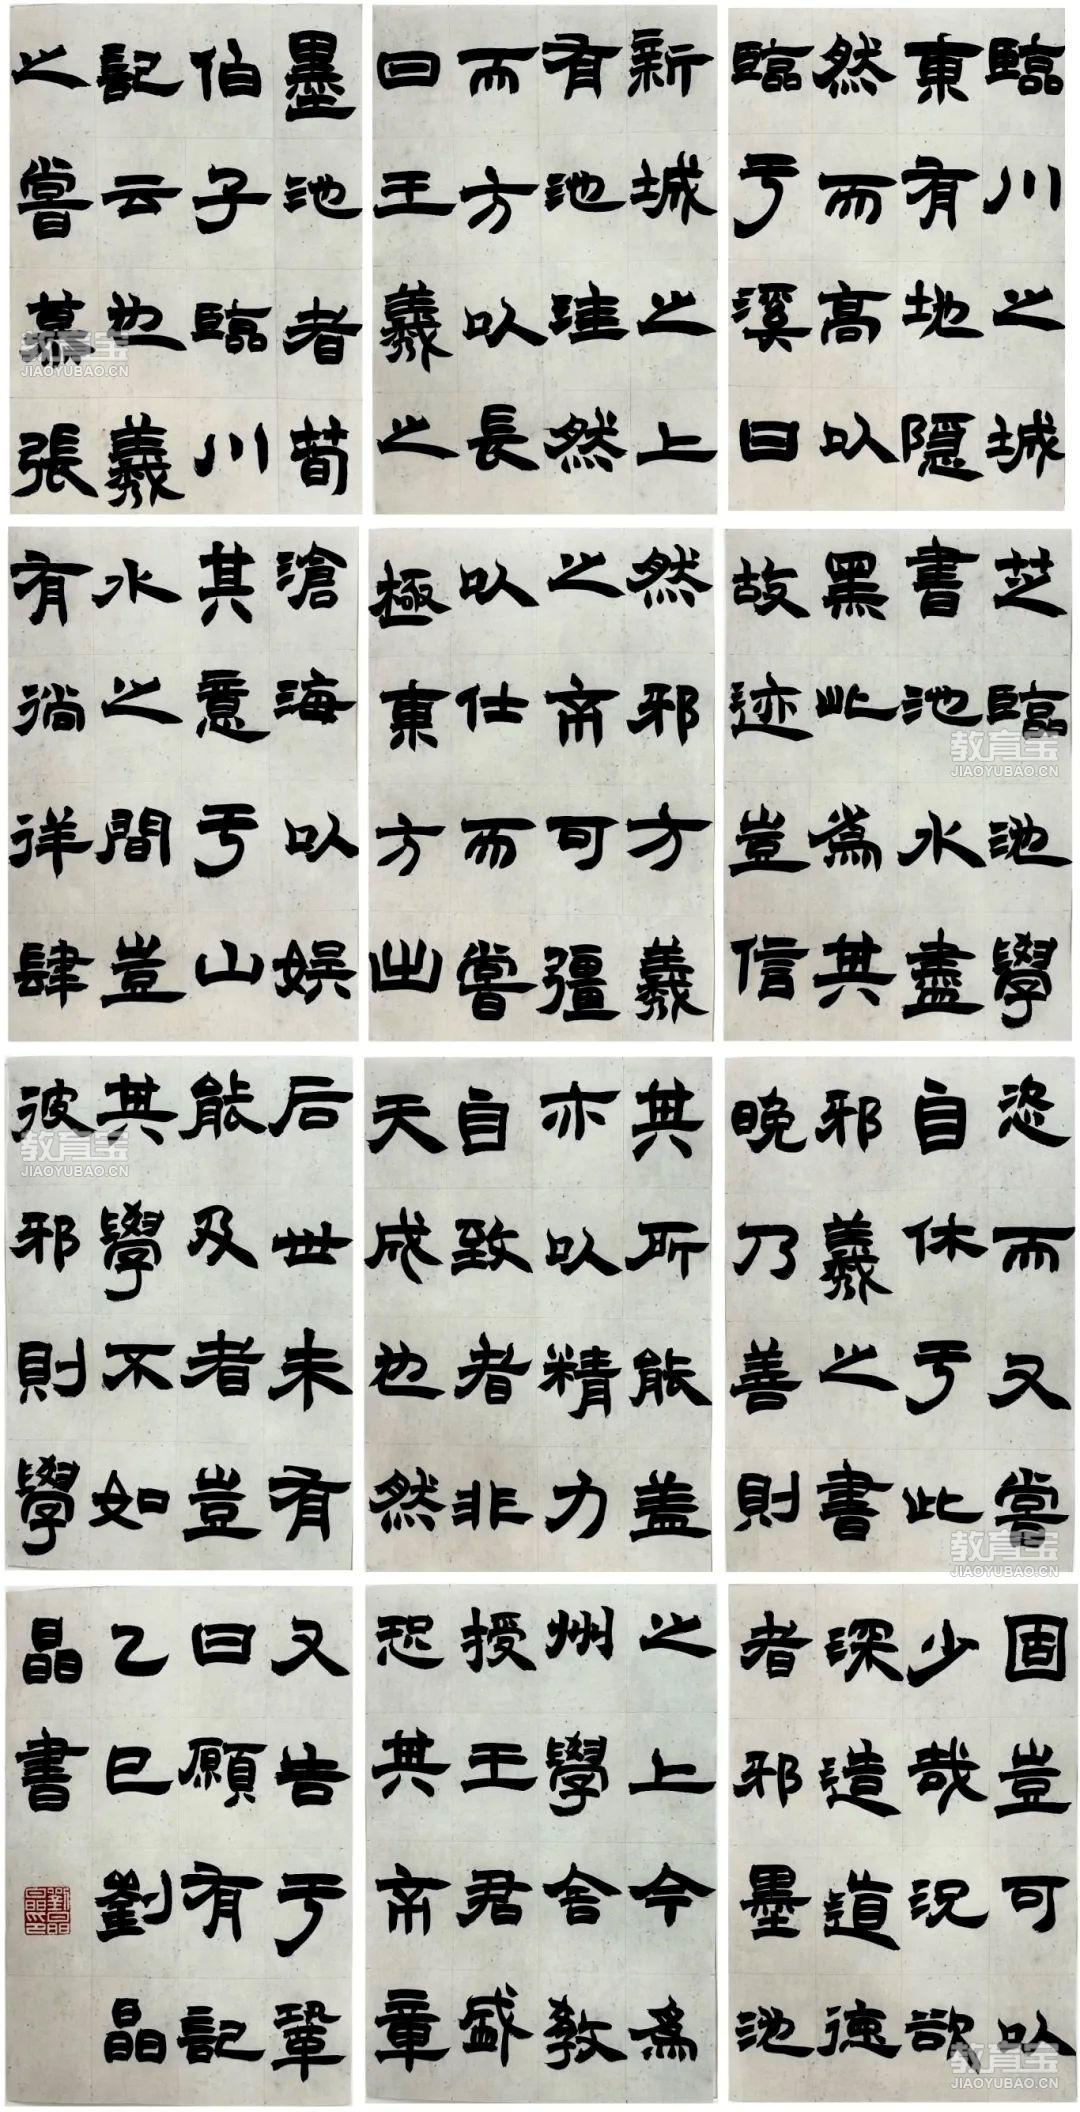 臨川之城
東有地隱
然而高以
臨于溪曰
新城之上
有池洼然
而方以長
曰王羲之
墨池者荀
伯子臨川
記云也羲
之嘗慕張
芝臨池學
書池水盡
黑此爲其
故迹豈信
然邪方羲
之帝可彊
以仕而嘗
極東方出
滄海以娛
其意于山
水之間豈
有徜徉肆
恣而又嘗
自休于此
邪羲之書
晚乃善則
其所能盖
亦以精力
自致者非
天成也然
后世未有
能及者豈
其學不如
彼邪則學
固豈可以
少哉況欲
深造道德
者邪墨池
之上今爲
州學舍教
授王君盛
恐其帝章
又告于鞏
曰願有記
乙巳劉晶
晶書
劉晶晶印
教育宝
JIAOYUBAO.CN
教育宝
JIAOYUBAO.CN
教育宝
JIAOYUBAO.CN
教育宝
JIAOYUBAO.CN
教育宝
JIAOYUBAO.CN